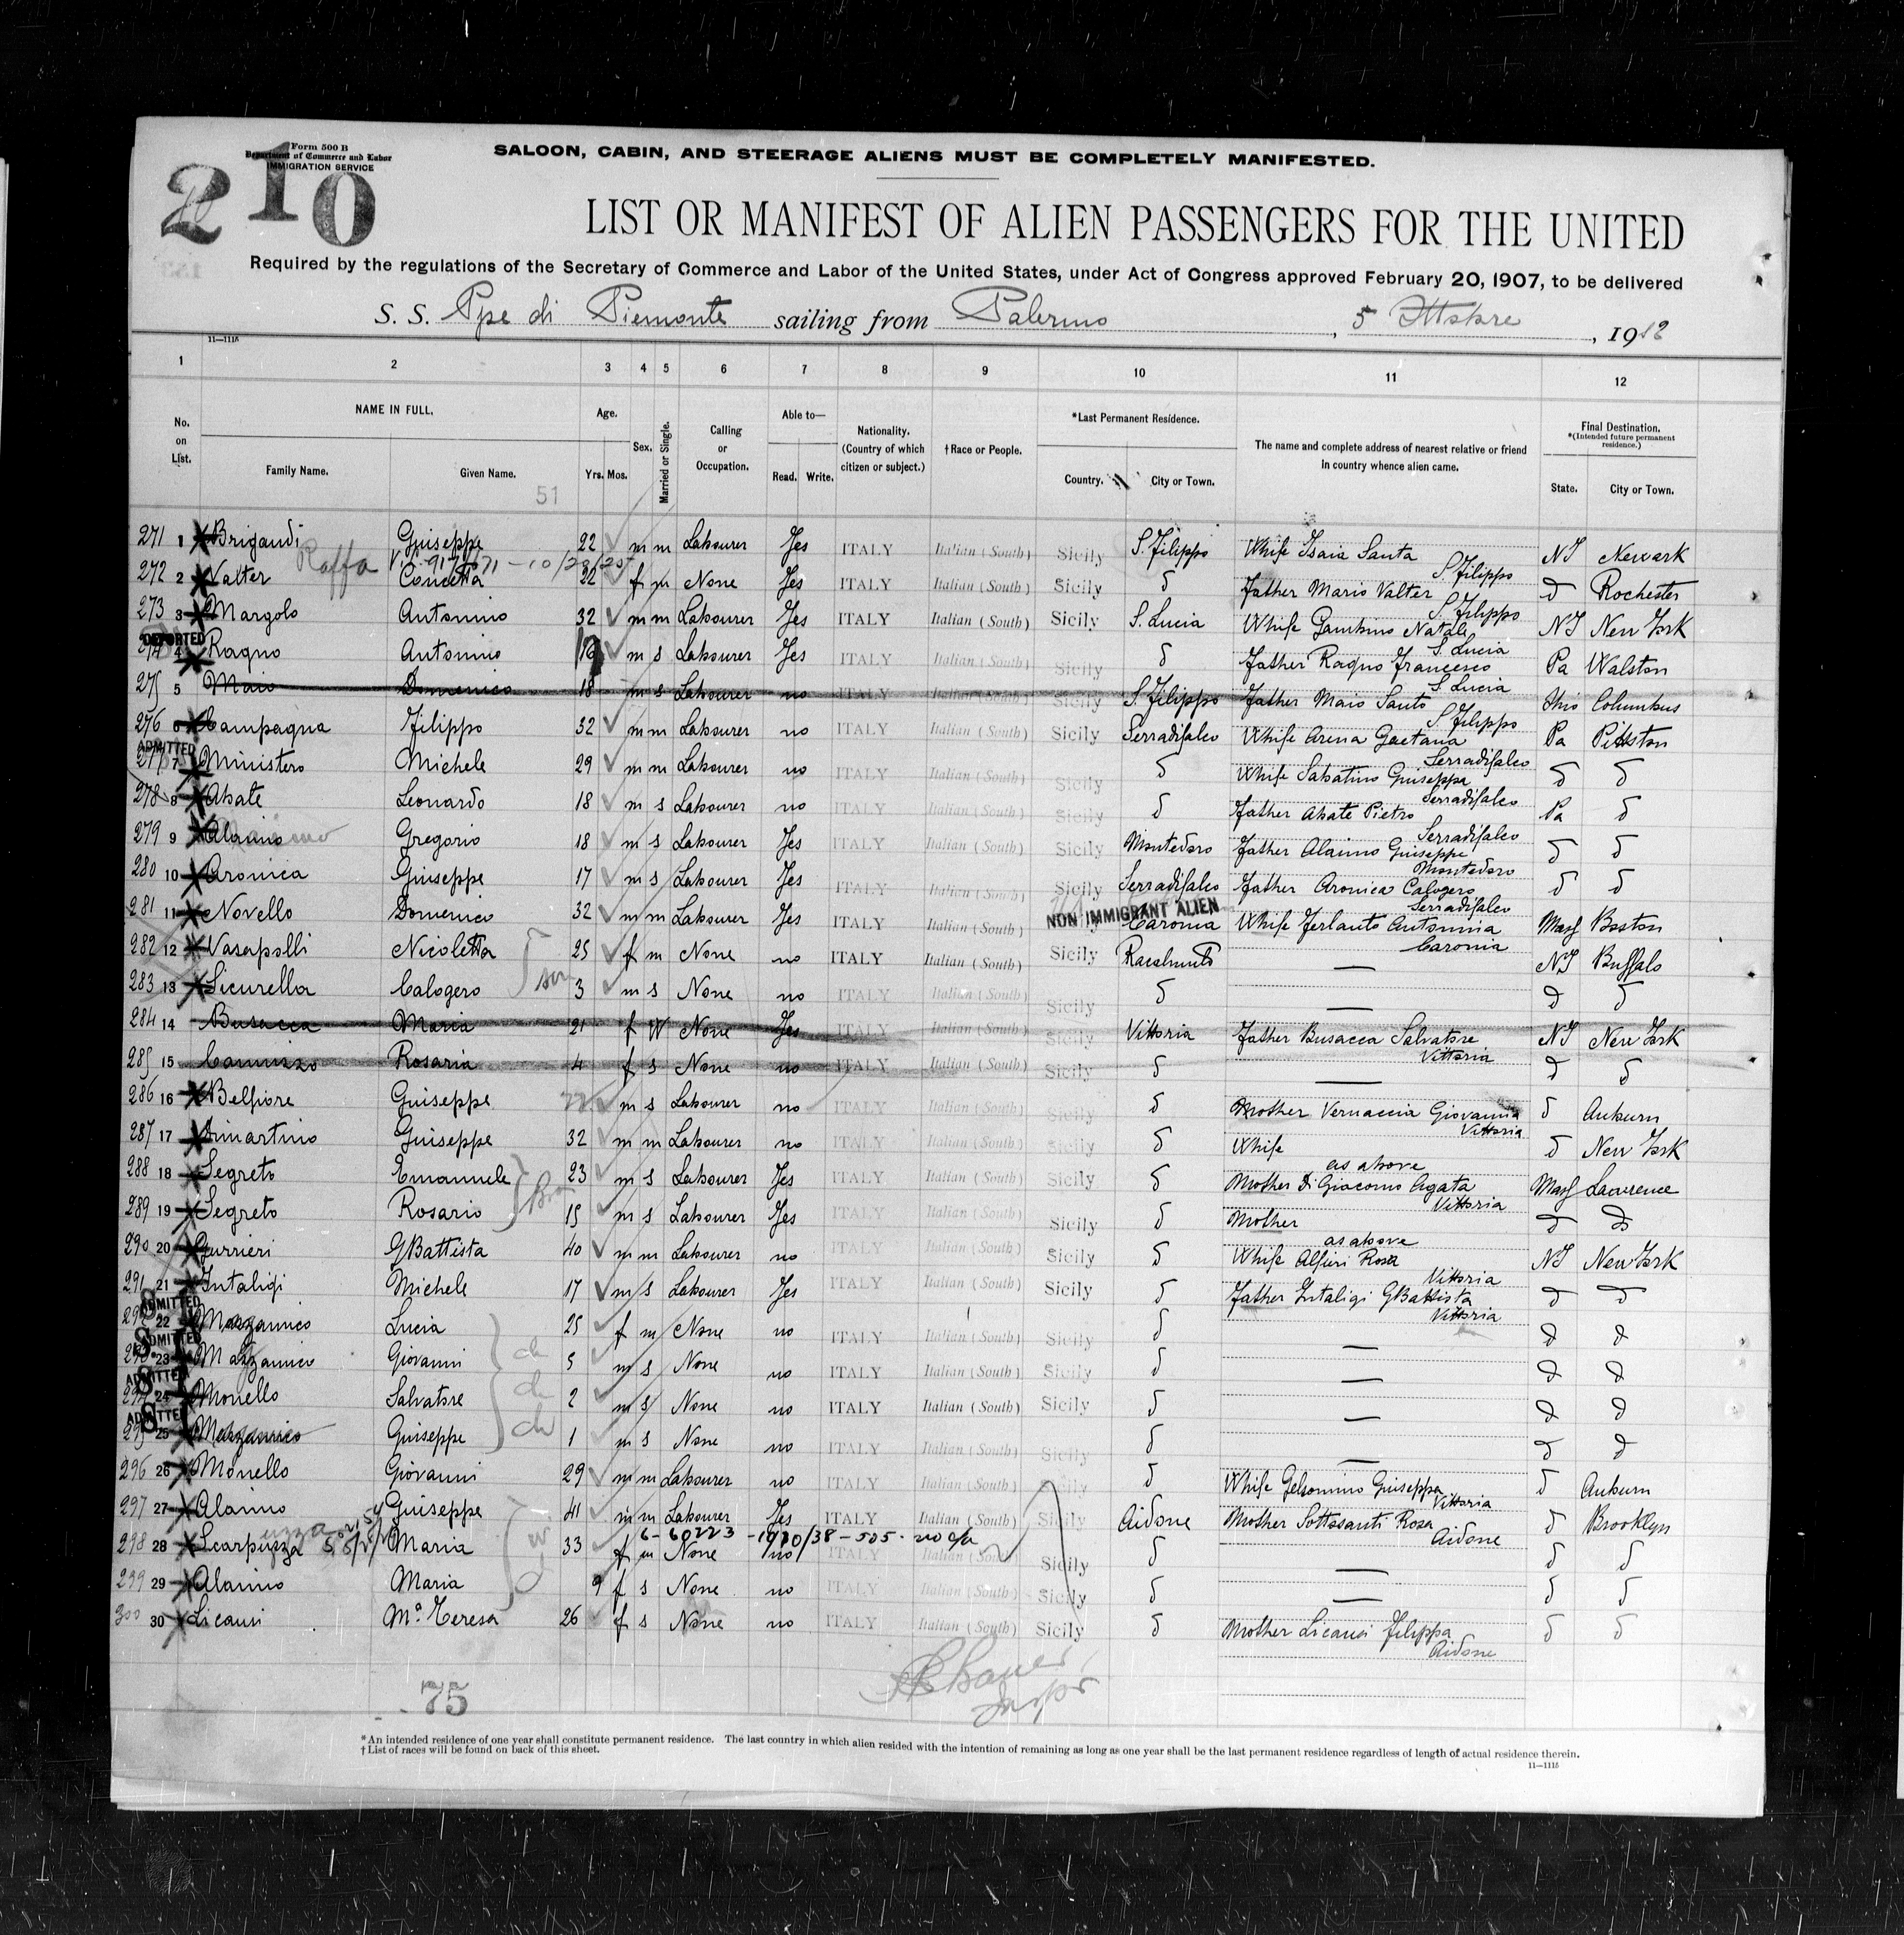 Form 500 B
Department of Commerce and Labor
IMMIGRATION SERVICE
210
SALOON, CABIN, AND STEERAGE ALIENS MUST BE COMPLETELY MANIFESTED.
LIST OR MANIFEST OF ALIEN PASSENGERS FOR THE UNITED
Required by the regulations of the Secretary of Commerce and Labor of the United States, under Act of Congress approved February 20, 1907, to be delivered
S. S. Ppe di Piemonte sailing from Palermo, 5 Ottobre, 1912
11—1115
1 2 3 4 5 6 7 8 9 10 11 12
No. on List.
NAME IN FULL.
Family Name. Given Name.
51
Age.
Yrs. Mos.
Sex.
Married or Single.
Calling or Occupation.
Able to—
Read. Write.
Nationality. (Country of which citizen or subject.)
†Race or People.
*Last Permanent Residence.
Country. City or Town.
The name and complete address of nearest relative or friend in country whence alien came.
Final Destination.
*(Intended future permanent residence.)
State. City or Town.
271 1 Brigandi Giuseppe 22 m m Labourer Yes ITALY Italian (South) Sicily S. Filippo Whife Isaia Santa S. Filippo NJ Newark
Raffa
272 2 Valter Concetta 22 f m None Yes ITALY Italian (South) Sicily d Father Mario Valter S. Filippo d Rochester
273 3 Margolo Antonino 32 m m Labourer Yes ITALY Italian (South) Sicily S. Lucia Whife Gambino Natale S. Lucia NY New York
DEPORTED
274 4 Ragno Antonino m s Labourer Yes ITALY Italian (South) Sicily d Father Ragno Francesco S. Lucia Pa Walston
275 5 Maio Domenico 18 m s Labourer no ITALY Italian (South) Sicily S. Filippo Father Maio Santo S. Filippo Ohio Columbus
276 6 Campagna Filippo 32 m m Labourer no ITALY Italian (South) Sicily Serradifalco Whife Arena Gaetana Serradifalco Pa Pittston
ADMITTED
277 7 Ministero Michele 29 m m Labourer no ITALY Italian (South) Sicily d Whife Sabatino Giuseppa Serradifalco d d
278 8 Abate Leonardo 18 m s Labourer no ITALY Italian (South) Sicily d Father Abate Pietro Serradifalco Pa d
279 9 Alaimo Gregorio 18 m s Labourer Yes ITALY Italian (South) Sicily Montedoro Father Alaimo Giuseppe Montedoro d d
280 10 Aronica Giuseppe 17 m s Labourer Yes ITALY Italian (South) Sicily Serradifalco Father Aronica Calogero Serradifalco d d
NON IMMIGRANT ALIEN
281 11 Novello Domenico 32 m m Labourer Yes ITALY Italian (South) Caronia Whife Ferlauto Antonina Caronia Mass Boston
282 12 Vasapolli Nicoletta 25 f m None no ITALY Italian (South) Sicily Racalmuto — NY Buffalo
son
283 13 Licurella Calogero 3 m s None no ITALY Italian (South) Sicily d — d d
284 14 Busacca Maria 21 f W None Yes ITALY Italian (South) Sicily Vittoria Father Busacca Salvatore Vittoria NY New York
285 15 Cannizzo Rosaria 4 f s None no ITALY Italian (South) Sicily d — d d
286 16 Belfiore Giuseppe m s Labourer no ITALY Italian (South) Sicily d Mother Vernaccia Giovanna Vittoria d Auburn
287 17 Dimartino Giuseppe 32 m m Labourer no ITALY Italian (South) Sicily d Whife as above d New York
288 18 Segreto Emanuele 23 m s Labourer Yes ITALY Italian (South) Sicily d Mother Di Giacomo Agata Vittoria Mass Lawrence
289 19 Segreto Rosario 15 m s Labourer Yes ITALY Italian (South) Sicily d Mother as above d d
290 20 Gurrieri GBattista 40 m m Labourer no ITALY Italian (South) Sicily d Whife Alfieri Rosa Vittoria NY New York
291 21 Intaligi Michele 17 m s Labourer Yes ITALY Italian (South) Sicily d Father Intaligi GBattista Vittoria d d
ADMITTED
292 22 Mazzanico Lucia 25 f m None no ITALY Italian (South) Sicily d — d d
ADMITTED
293 23 Mazzanico Giovanni 5 m s None no ITALY Italian (South) Sicily d — d d
ADMITTED
294 24 Monello Salvatore 2 m s None no ITALY Italian (South) Sicily d — d d
ADMITTED
295 25 Mazzanico Giuseppe 1 m s None no ITALY Italian (South) Sicily d — d d
296 26 Monello Giovanni 29 m m Labourer no ITALY Italian (South) Sicily d Whife Gelsomino Giuseppa Vittoria d Auburn
297 27 Alaimo Giuseppe 41 m m Labourer Yes ITALY Italian (South) Sicily Aidone Mother Sottosanti Rosa Aidone d Brooklyn
298 28 Scarpuzza Maria 33 f m None no ITALY Italian (South) Sicily d — d d
299 29 Alaimo Maria 9 f s None no ITALY Italian (South) Sicily d — d d
300 30 Licausi Ma. Teresa 26 f s None no ITALY Italian (South) Sicily d Mother Licausi Filippa Aidone d d
75
*An intended residence of one year shall constitute permanent residence. The last country in which alien resided with the intention of remaining as long as one year shall be the last permanent residence regardless of length of actual residence therein.
†List of races will be found on back of this sheet.
11—1115